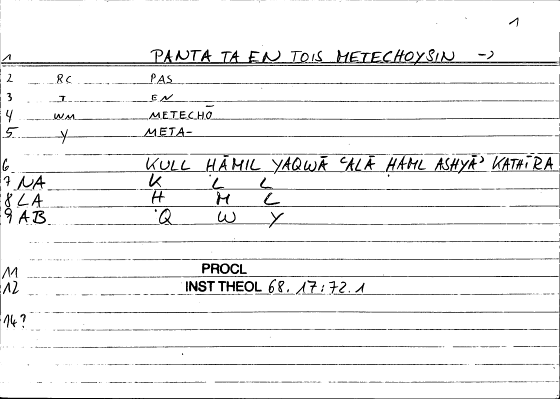 1
1 PANTA TA EN TOIS METECHOYSIN →
2 RC PAS
3 I EN
4 WM METECHŌ
5 Y META-
6 KULL ḤĀMIL YAQWĀ ʿALĀ ḤAML ASHYĀʾ KATHĪRA
7 NA K L L
8 LA Ḥ M L
9 AB Q W Y
11 PROCL
12 INST THEOL 68.17:72.1
14?